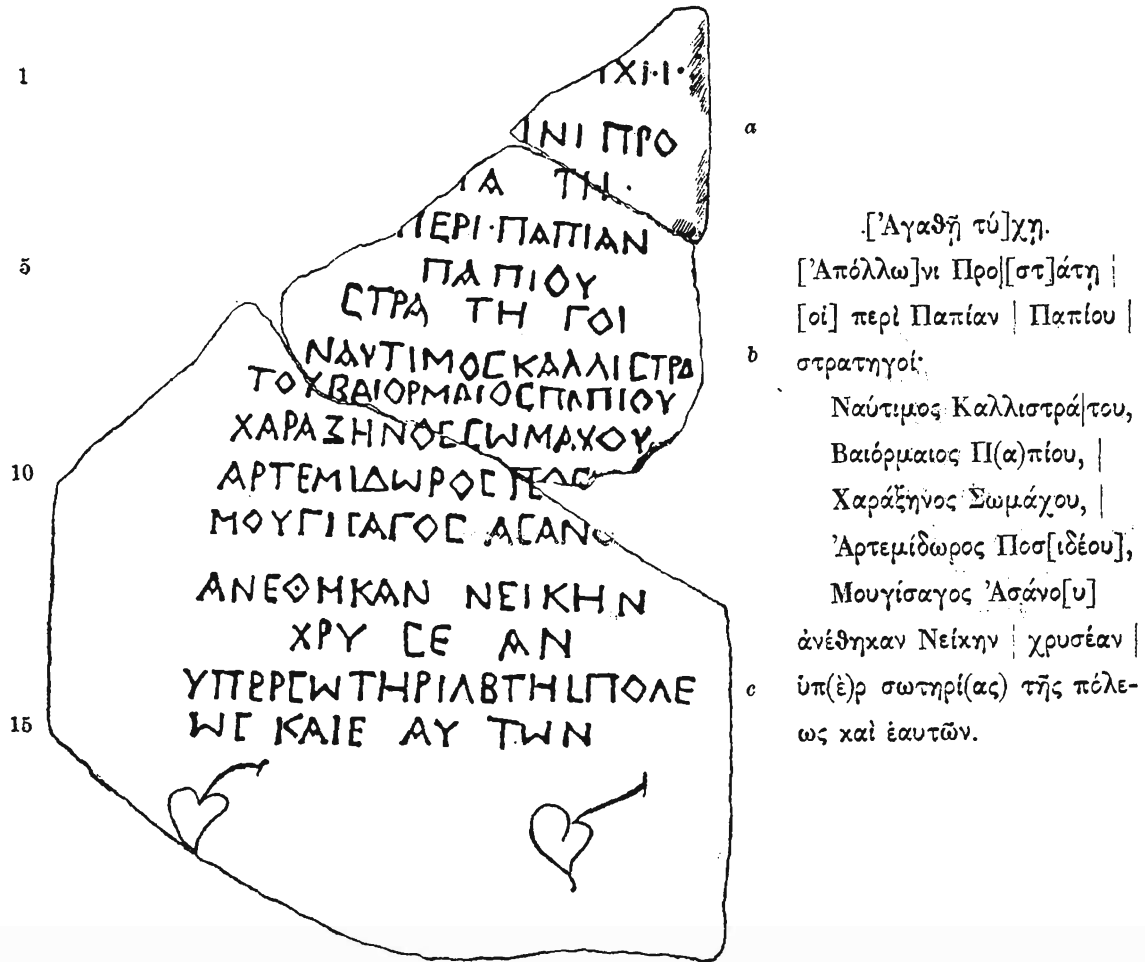 1
ΥΧΙ·Ι·
ΙΝΙ ΠΡΟ
a
ΤΑ ΤΗ·
ΠΕΡΙ·ΠΑΠΙΑΝ
5
ΠΑΠΙΟΥ
ϹΤΡΑ ΤΗ ΓΟΙ
ΝΑΥΤΙΜΟϹΚΑΛΛΙϹΤΡΑ
b
ΤΟΥΒΑΙΟΡΜΑΙΟϹΠΛΠΙΟΥ
ΧΑΡΑΞΗΝΟϹϹΩΜΑΧΟΥ
10
ΑΡΤΕΜΙΔΩΡΟϹ ΠΟϹ
ΜΟΥΓΙϹΑΓΟϹ ΑϹΑΝΟ
ΑΝΕΘΗΚΑΝ ΝΕΙΚΗΝ
ΧΡΥ ϹΕ ΑΝ
ΥΠΡΡϹΩΤΗΡΙΛΒΤΗϹΠΟΛΕ
c
15
ΩϹ ΚΑΙΕ ΑΥ ΤΩΝ
.[Ἀγαθῇ τύ]χῃ.
[Ἀπόλλω]νι Προ|[στ]άτῃ |
[οἱ] περὶ Παπίαν | Παπίου |
στρατηγοί·
Ναύτιμος Καλλιστρά|του,
Βαιόρμαιος Π(α)πίου, |
Χαράξηνος Σωμάχου, |
Ἀρτεμίδωρος Ποσ[ιδέου],
Μουγίσαγος Ἀσάνο[υ]
ἀνέθηκαν Νείκην | χρυσέαν |
ὑπ(ὲ)ρ σωτηρί(ας) τῆς πόλε-
ως καὶ ἑαυτῶν.